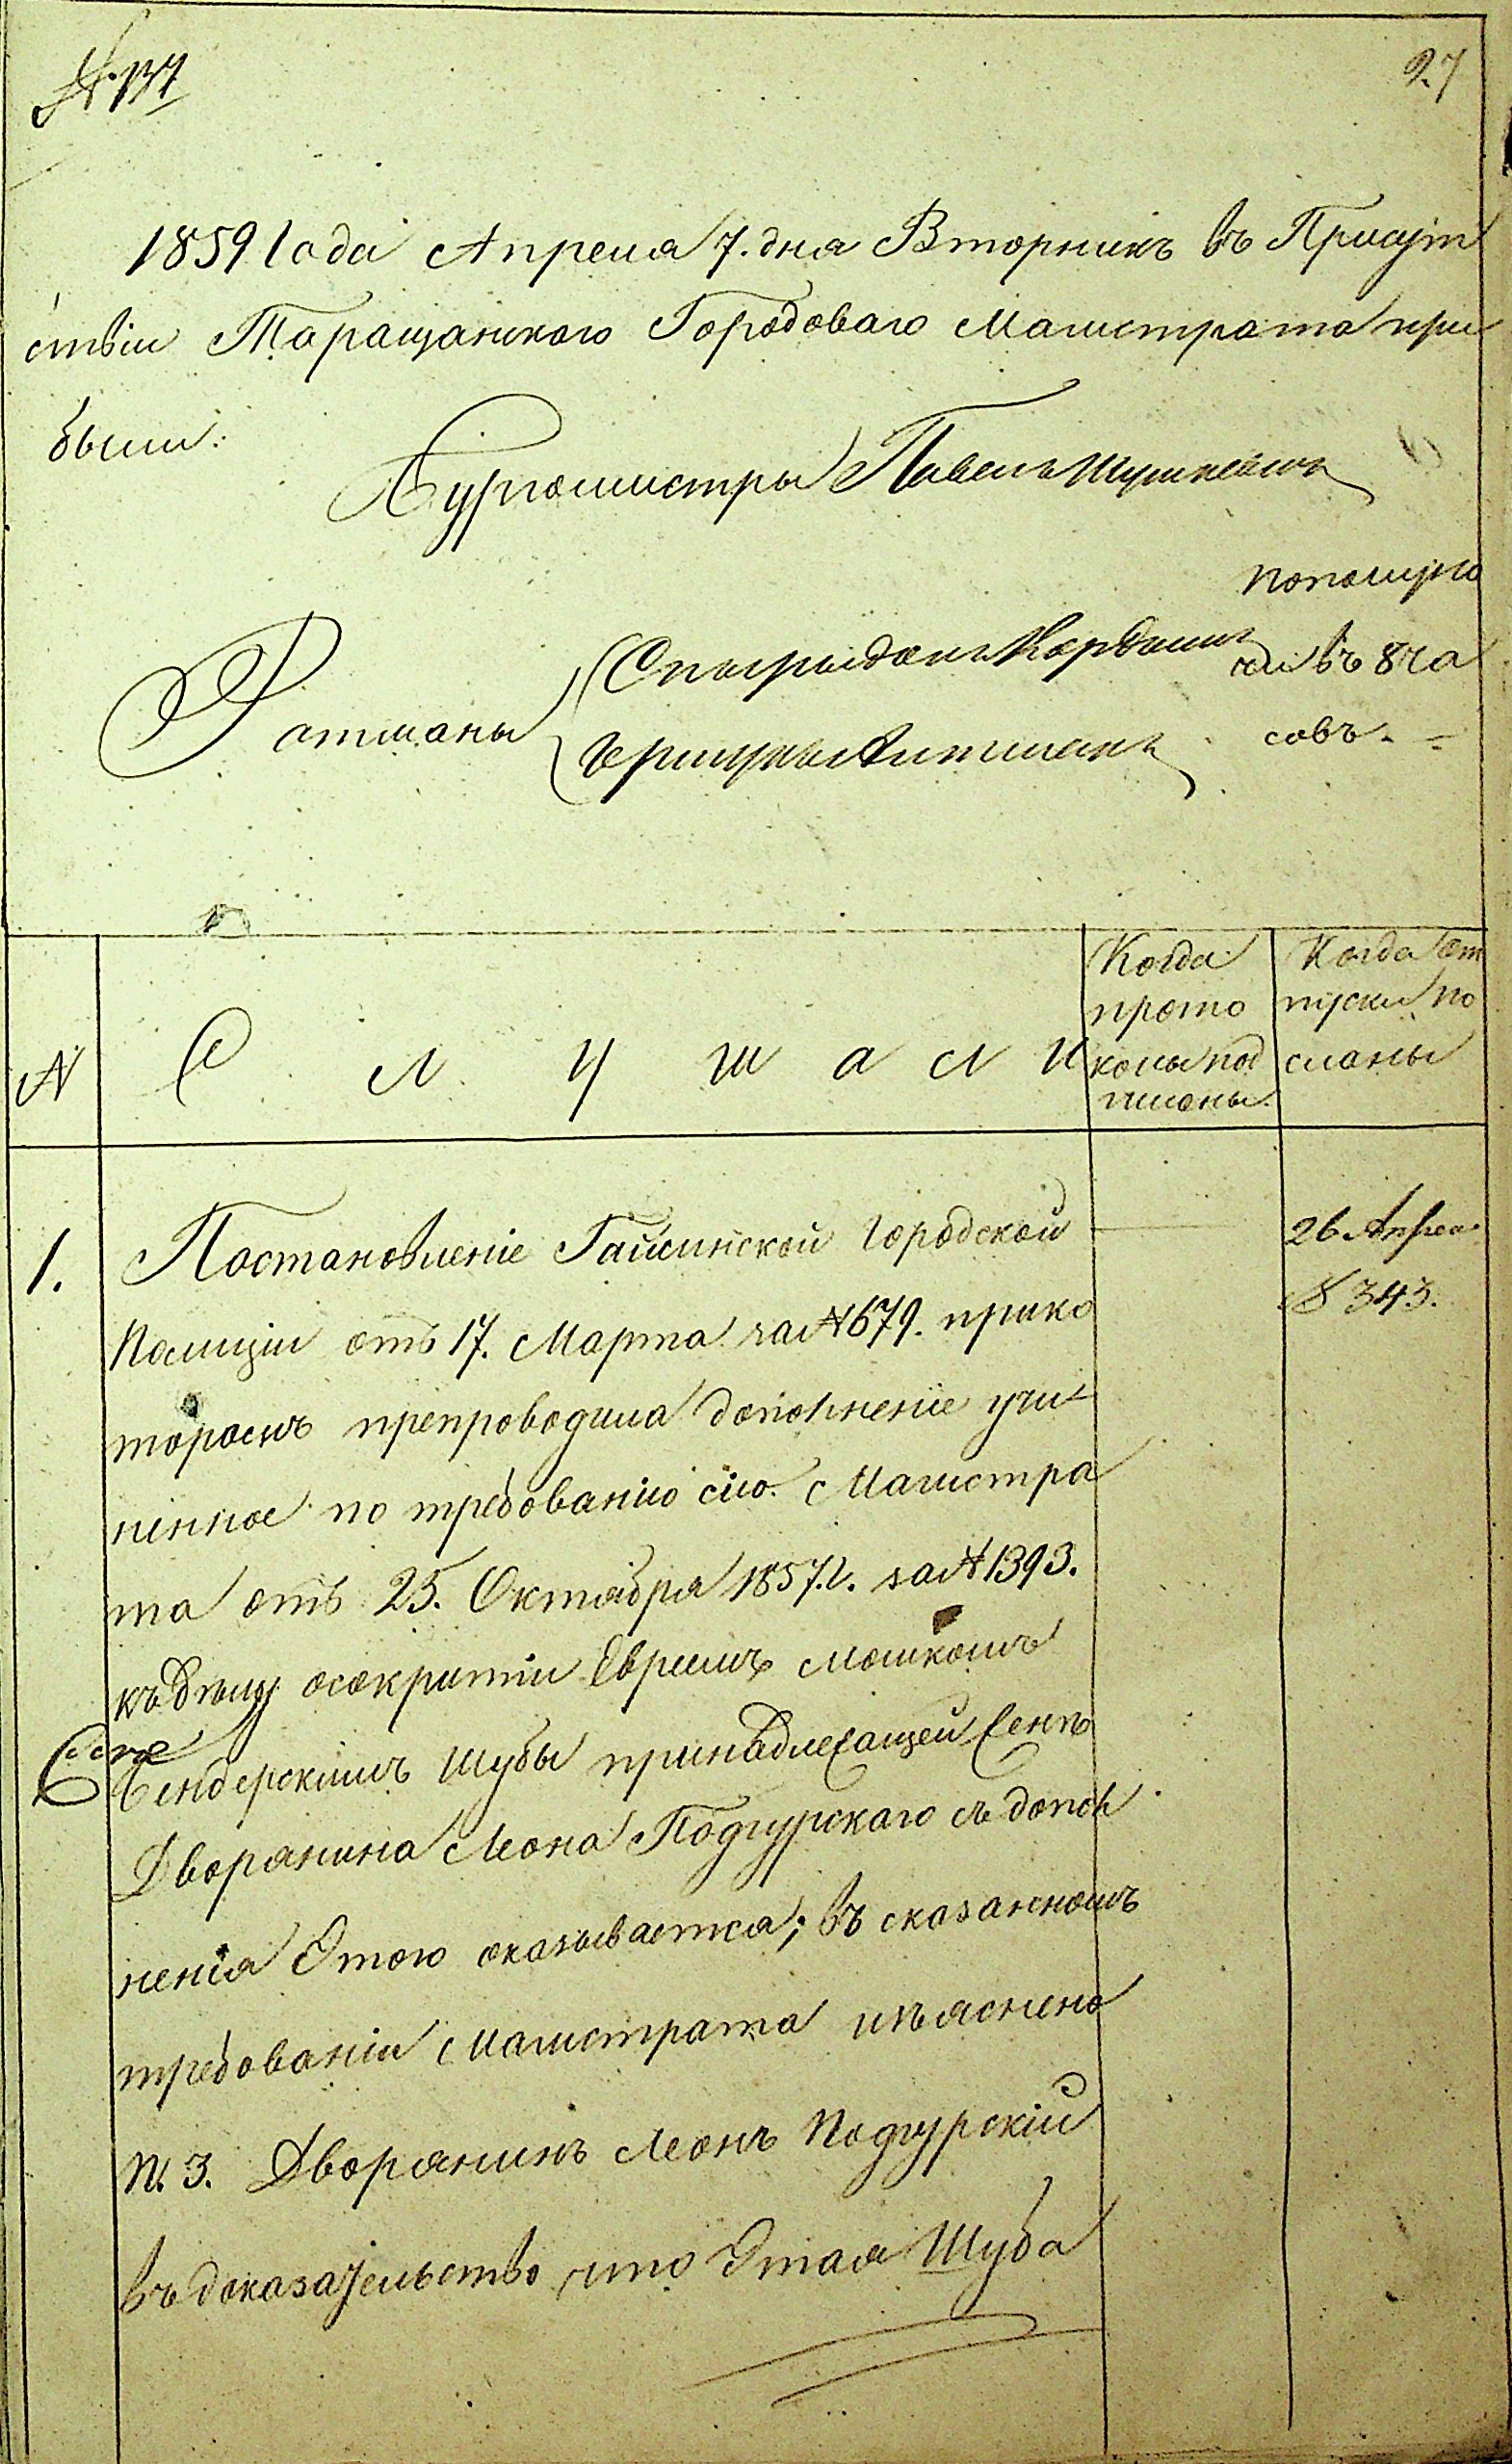 № 137
27
1859 Года Апреля 7. дня Вторникъ въ Присут
ствіи Таращанского Городоваго Магистрата при
были:
Бургомистры Павелъ Шушкевичъ
пополуно
Ратманы Спиридонъ Кордышъ
чи въ 8 ча
Литманъ
совъ.
№ С л у ш а л и
Когда прото
колы под
писаны.
Когда от
пуски по
сланы
1. Постановленіе Гайсинской Городской
Полиціи отъ 17. Марта за № 679. при ко
торомъ препроводила дополненіе учи
ненное по требованію сего Магистра
та отъ 25. Октября 1857. г. за № 1393.
къ делу о сокритіи Евреемъ Мошкомъ
Бендерскимъ Шубы принадлежащей Женѣ
Дворянина Леона Подгурскаго съ допол
ненія Этого оказывается; въ сказанномъ
требованіи Магистрата изъяснено
п. 3. Дворянинъ Леонъ Подгурскій
въ доказательство что Этая Шуба
26 Апрел
№ 343.